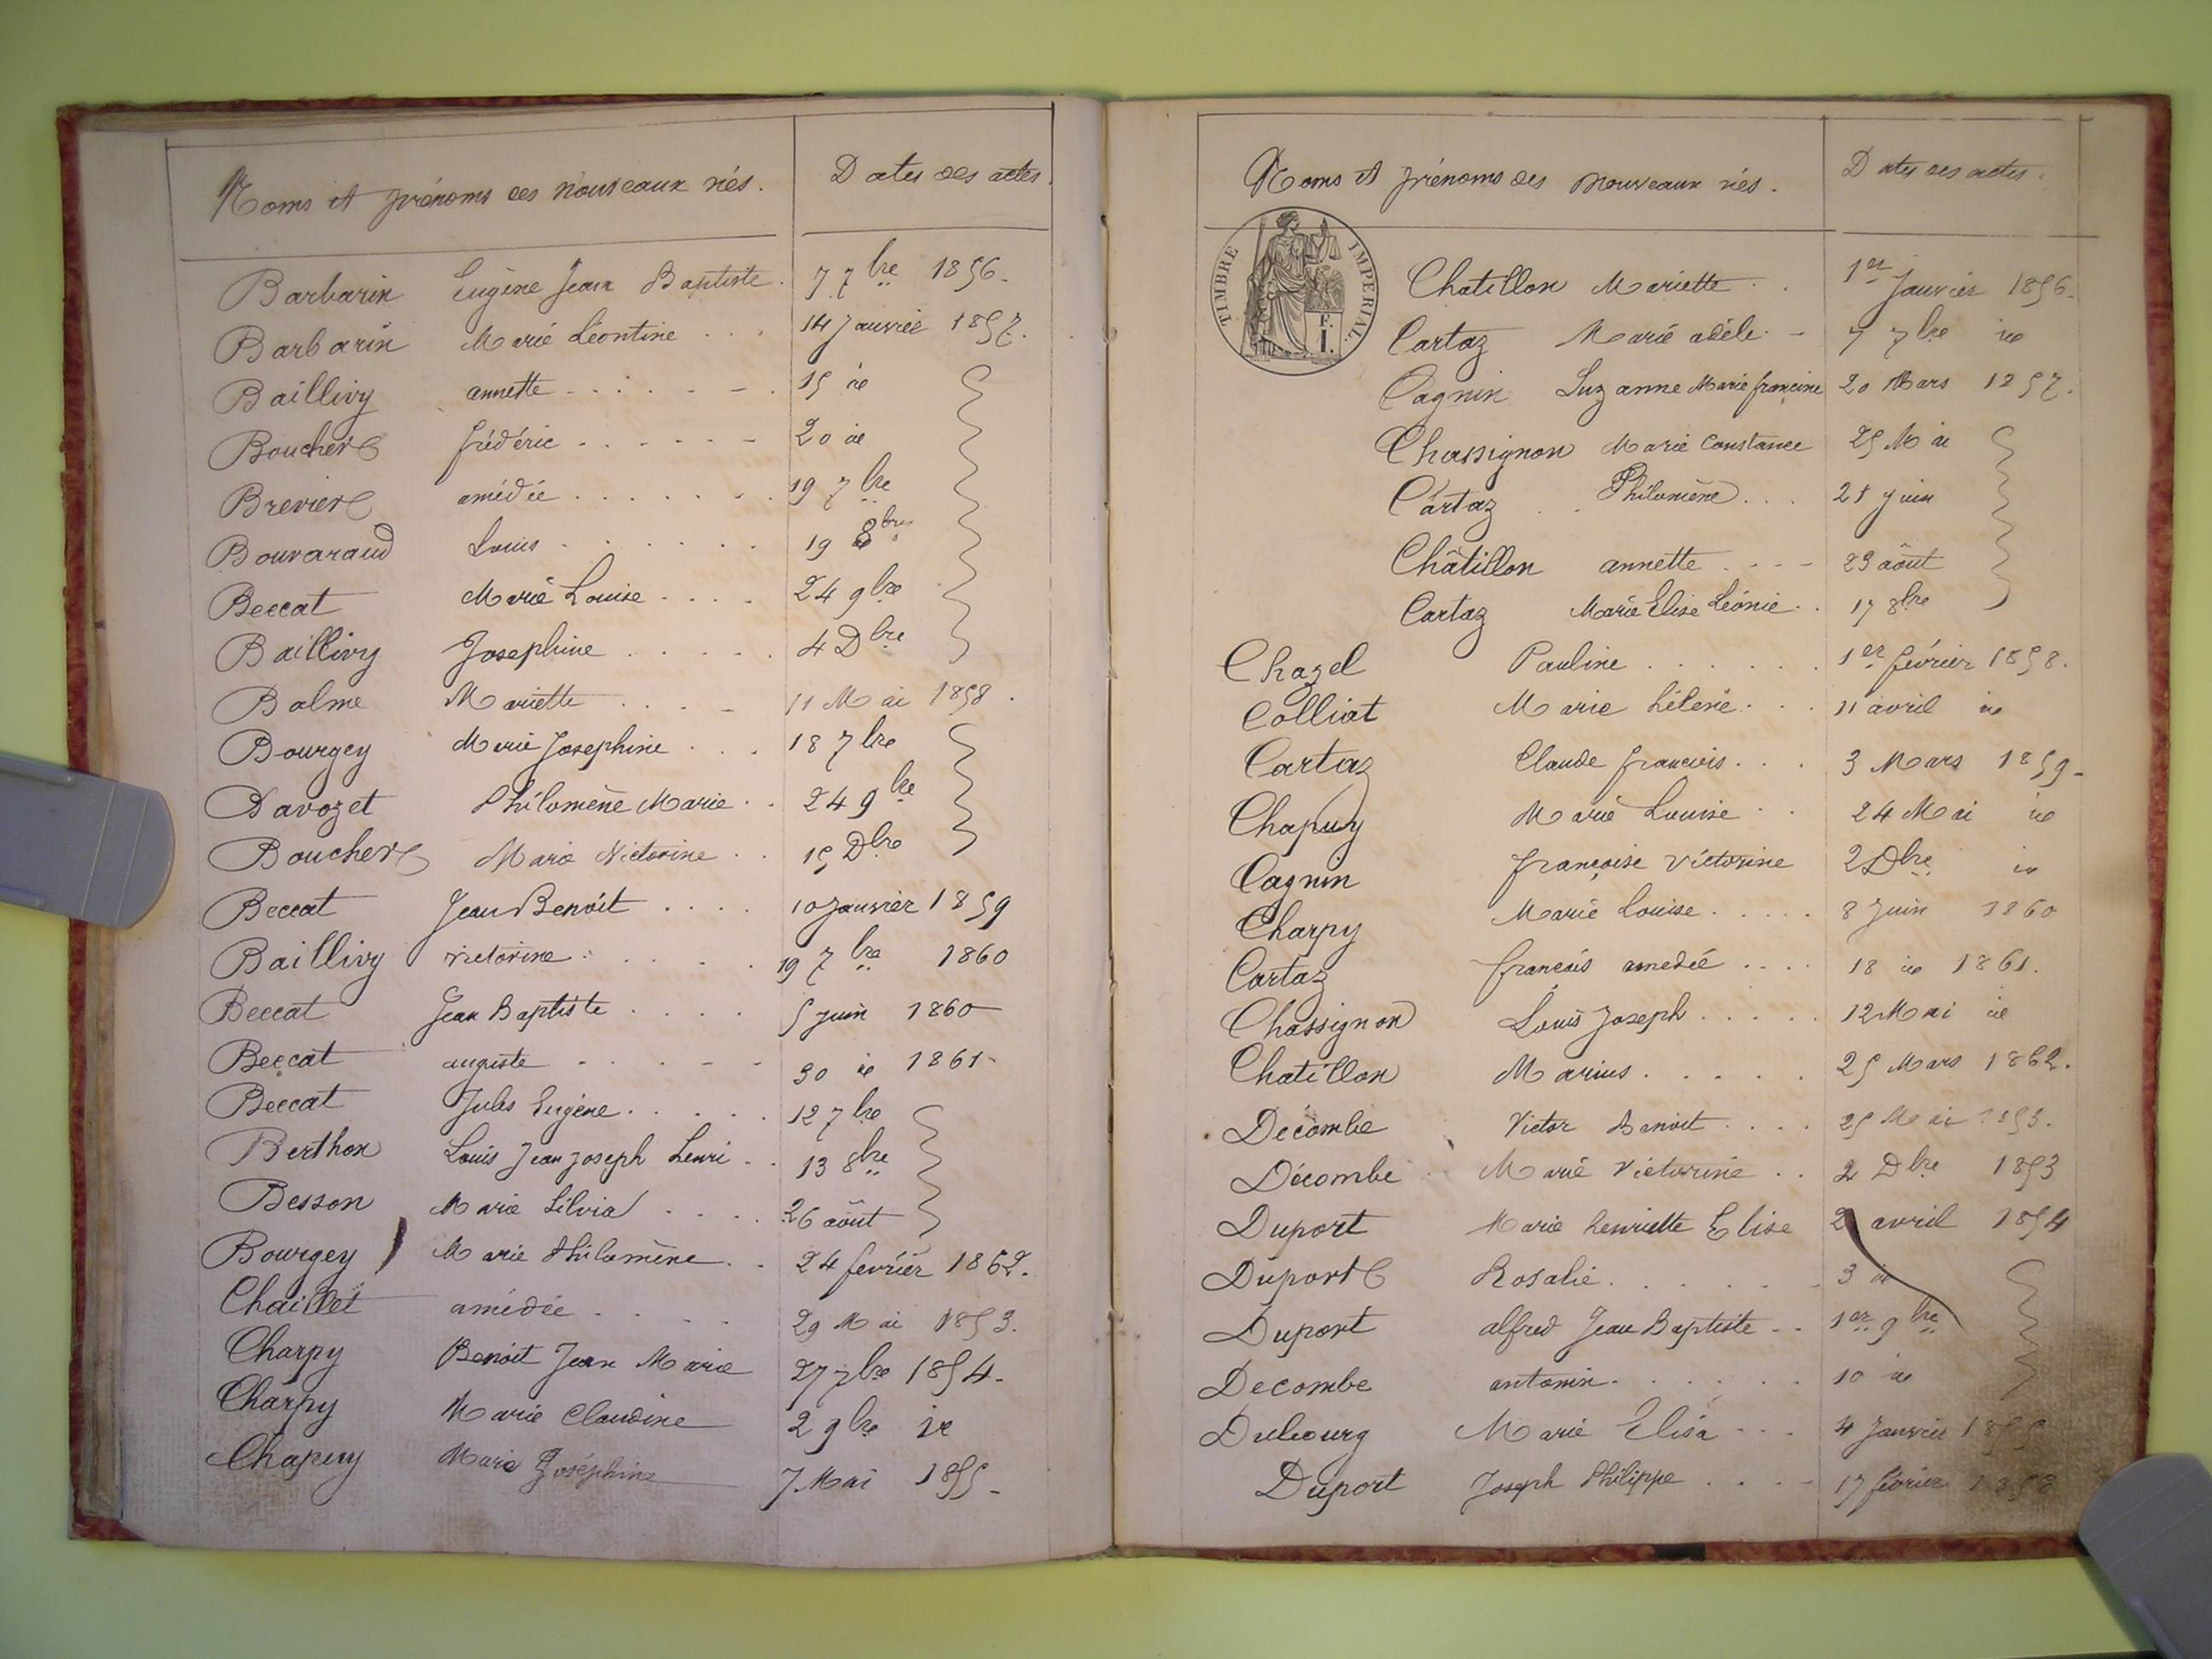 Noms et prénoms des nouveaux nés. Dates des actes.
Barbarin Eugène Jean Baptiste. 7 7bre 1856.
Barbarin Marie Léontine . . . 14 Janvier 1857.
Baillivy annette . . . . . . 15 id
Boucher frédéric . . . . . . 20 id
Brevier amédée . . . . . . . 19 7bre
Bouvaraud Louis . . . . . . 19 8bre
Beccat Marie Louise . . . . 24 9bre
Baillivy Josephine . . . . . 4 Dbre
Balme Mariette . . . . 11 Mai 1858.
Bourgey Marie Josephine . . . 18 7bre
Davozet Philomène Marie . . 24 9bre
Boucher Marie Victorine . . 15 Dbre
Beccat Jean Benoit . . . . 10 Janvier 1859
Baillivy victorine . . . . . 19 7bre 1860
Beccat Jean Baptiste . . . . 5 Juin 1860
Beccat auguste . . . . . 30 id 1861
Beccat Jules Eugène . . . . . 12 7bre
Berthon Louis Jean Joseph henri . . 13 8bre
Besson Marie Silvia . . . . 26 août
Bourgey Marie Philomène . . 24 février 1862.
Chaillet amédée . . . . 29 Mai 1853.
Charpy Benoit Jean Marie 27 7bre 1854.
Charpy Marie Claudine 2 9bre id
Chapuy Marie Joséphine 7 Mai 1855.
Noms et prénoms des nouveaux nés. Dates des actes.
TIMBRE IMPERIAL.
E. I.
Chatillon Mariette . . 1er Janvier 1856.
Cartaz Marie adèle. 7 7bre id
Cagnin Suzanne Marie françoine 20 Mars 1857.
Chassignon Marie Constance 25 Mai
Cartaz . . Philomène . . . 21 Juin
Châtillon annette . . . . 23 août
Cartaz Marie Elise Léonie . . 17 8bre
Chazel Pauline . . . . . . 1er février 1858.
Colliat Marie hélène . . . 11 avril id
Cartaz Claude françois . . . 3 Mars 1859
Chapuy Marie Louise . . 24 Mai id
Cagnin françoise victorine 2 Dbre id
Charpy Marie Louise . . . . . 8 Juin 1860
Cartaz françois amedée . . . . 18 id 1861.
Chassignon Louis Joseph . . . . . 12 Mai id
Chatillon Marius . . . . . 25 Mars 1862.
Décombe Victor Benoit . . . . 25 Mai 1853.
Décombe Marie Victorine . . 2 Dbre 1853
Duport Marie henriette Elise 2 avril 1854
Duport Rosalie . . . . . . 3 id
Duport alfred Jean Baptiste . . 1er 9bre
Decombe antonin . . . . . . 10 id
Dubourg Marie Elisa . . . 4 Janvier
Duport Joseph Philippe . . . . 17 février